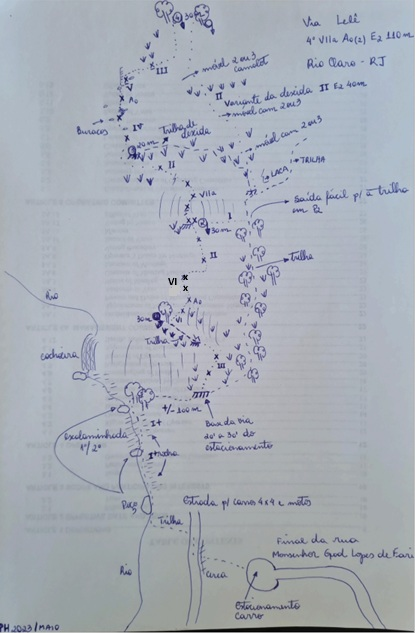 Via Lell
4º VIIa A0(2) E2 110m
Rio Claro - RJ
30m
III
móvel 2 ou 3
camalot
II
Variante da descida II E2 40m
móvel cam 2 ou 3
A0
Buracos
I+
Trilha de
descida
móvel cam 2 ou 3
20m
II
LACA
TRILHA
VIIa
Saída fácil p/ a trilha
em P2
I
30m
II
Trilha
VI
A0
Rio
30m
Trilha
Cachoeira
III
+/- 100m
Base da via
20' a 30' do
estacionamento
I+
escalaminhada
1º/2º
Poço
Estrada p/ carros 4x4 e motos
Trilha
Final da rua
Monsenhor
Lopes de
Rio
cerca
Estacionamento
Carro
PH 2023/MAIO